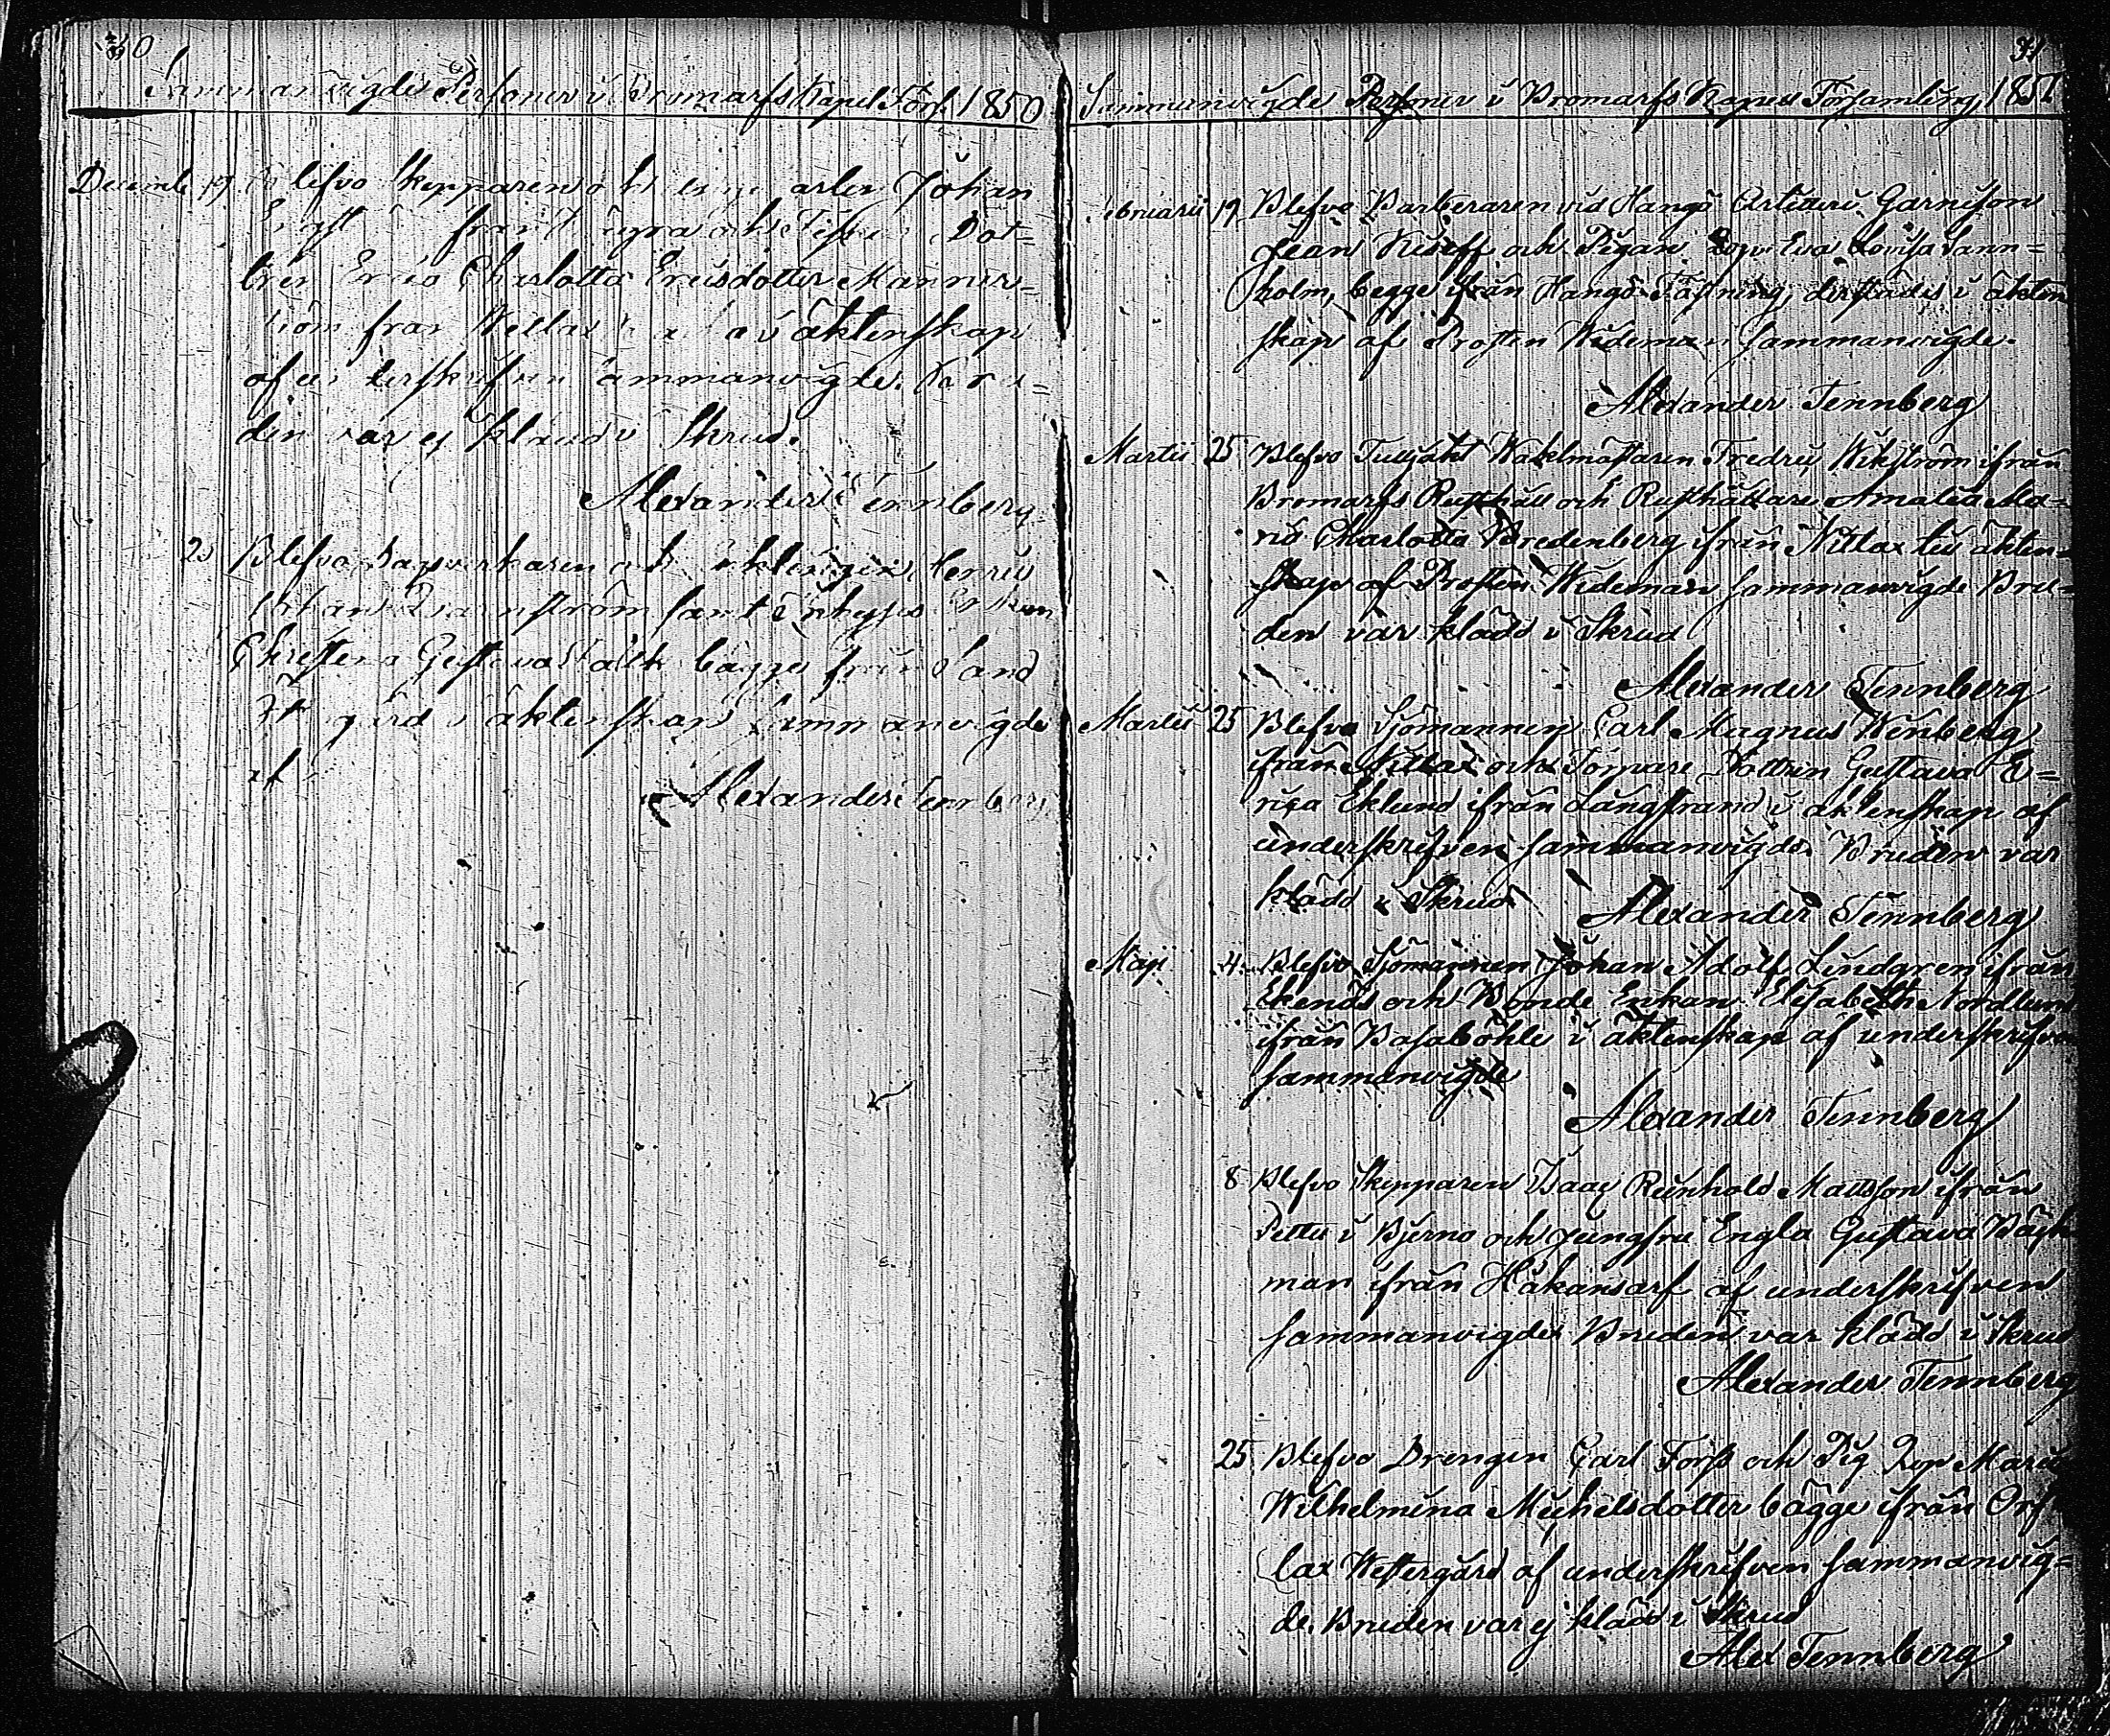 30
Sammanvigde Personer i Bromarfs Kapel Förs. 1850
Decemb 19 Blefvo Skepparen Johan
från och Dot=
tren Erica Charlotta Ericsdotter Manner=
ström från i äktenskap
af underskrifven sammanvigde. Bru=
den var ej klädd i Skrud.
Alexander Tennberg
Blefvo och
samt Inhyses Enkan
Christina Gustava bägge från Sand
gård i äktenskap sammanvigde
af
Alexander Tennberg
31
Sammanvigde Personer i Bromarfs Kapell Församling, 1851
Februarii 19 Blefvo Barberaren vid Hangö Artilleri Garnison
och Pigan Eva Lovisa Sann=
holm, begge ifrån Hangö Fästning, derstädes i äkten
skap af Prosten Wideman sammanvigde.
Alexander Tennberg
Martii 25 Blefvo Waktmästaren Fredric Wikström ifrån
Bromarfs Rusthåll och Rusthållare Amalia Ma=
ria Charlotta Bredenberg ifrån Nittlax till äkten=
skap af Prosten Wideman sammanvigde Bru=
den var klädd i Skrud
Alexander Tennberg
Martii 25 Blefvo Sjömannen Carl Magnus Wenberg
ifrån Nittlax och Torpare Dottren Gustava E=
rica Eklund ifrån Långstrand i äktenskap af
underskrifven sammanvigde. Bruden var
klädd i Skrud
Alexander Tennberg
Maji 4. Blefvo Sjömannen Johan Adolf Lindgren ifrån
Ekenäs och Bonde Enkan Elisabeth Nordlund
ifrån Basaböhle i äktenskap af underskrifven
sammanvigde
Alexander Tennberg
8 Blefvo Skepparen Isaac Reinhold Mattsson ifrån
Pettu i Bjerno och jungfru Engla Gustava
man ifrån Håkansarf af underskrifven
sammanvigde Bruden var klädd i Skrud
Alexander Tennberg
25 Blefvo Drengen Carl Forss och Pig Maria
Wilhelmina Michelsdotter bägge ifrån Orf
lax Westergård af underskrifven sammanvig=
de. Bruden var ej klädd i Skrud
Alex Tennberg